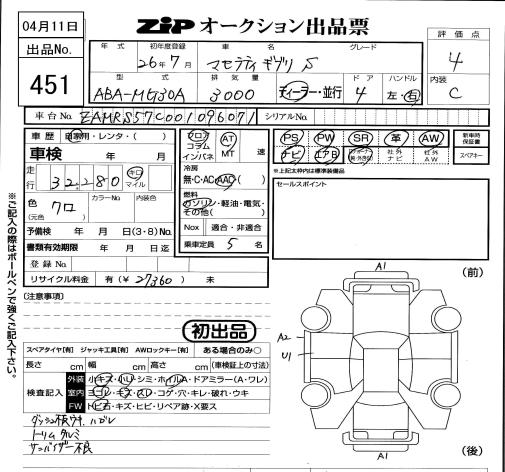 04月11日
出品No.
451
ZIP オークション出品票
評価点
4
内装
C
年式 初年度登録 車名 グレード
26年7月 マセラティ ギブリ S
型式 排気量 ドア ハンドル
ABA-MG30A 3000 ディーラー・並行 4 左・右
車台No. ZAMRS57C001096071 シリアルNo.
車歴 自家用・レンタ・( )
車検 年 月
走行 32,280 キロ マイル
色 (元色) クロ カラーNo. 内装色
予備検 年 月 日(3・8)No.
書類有効期限 年 月 日迄
登録No.
リサイクル料金 有(¥ 27360 ) 未
フロア コラム インパネ AT MT 速
冷房
無・C・AC・AAC・( )
燃料
ガソリン・軽油・電気・
その他( )
Nox 適合・非適合
乗車定員 5 名
PS PW SR 革 AW 新車時保証書
ナビ エアB 社外ナビ 社外AW スペアキー
※上記太枠内は標準装備品
セールスポイント
(注意事項)
初出品
スペアタイヤ[有] ジャッキ工具[有] AWロックキー[有] ある場合のみ○
長さ cm 幅 cm 高さ cm (車検証上の寸法)
検査記入
外装 小キズ・小凹・シミ・ホイルA・ドアミラー(A・ワレ)
室内 ヨゴレ・キズ・スレ・コゲ・穴・キレ・破れ・ウキ
FW トビ石・キズ・ヒビ・リペア跡・X要ス
ダッシュ板ウキ、ハガレ
トリム タルミ
サンバイザー不良
A1
(前)
A2
U1
A1
(後)
※ご記入の際はボールペンで強くご記入下さい。